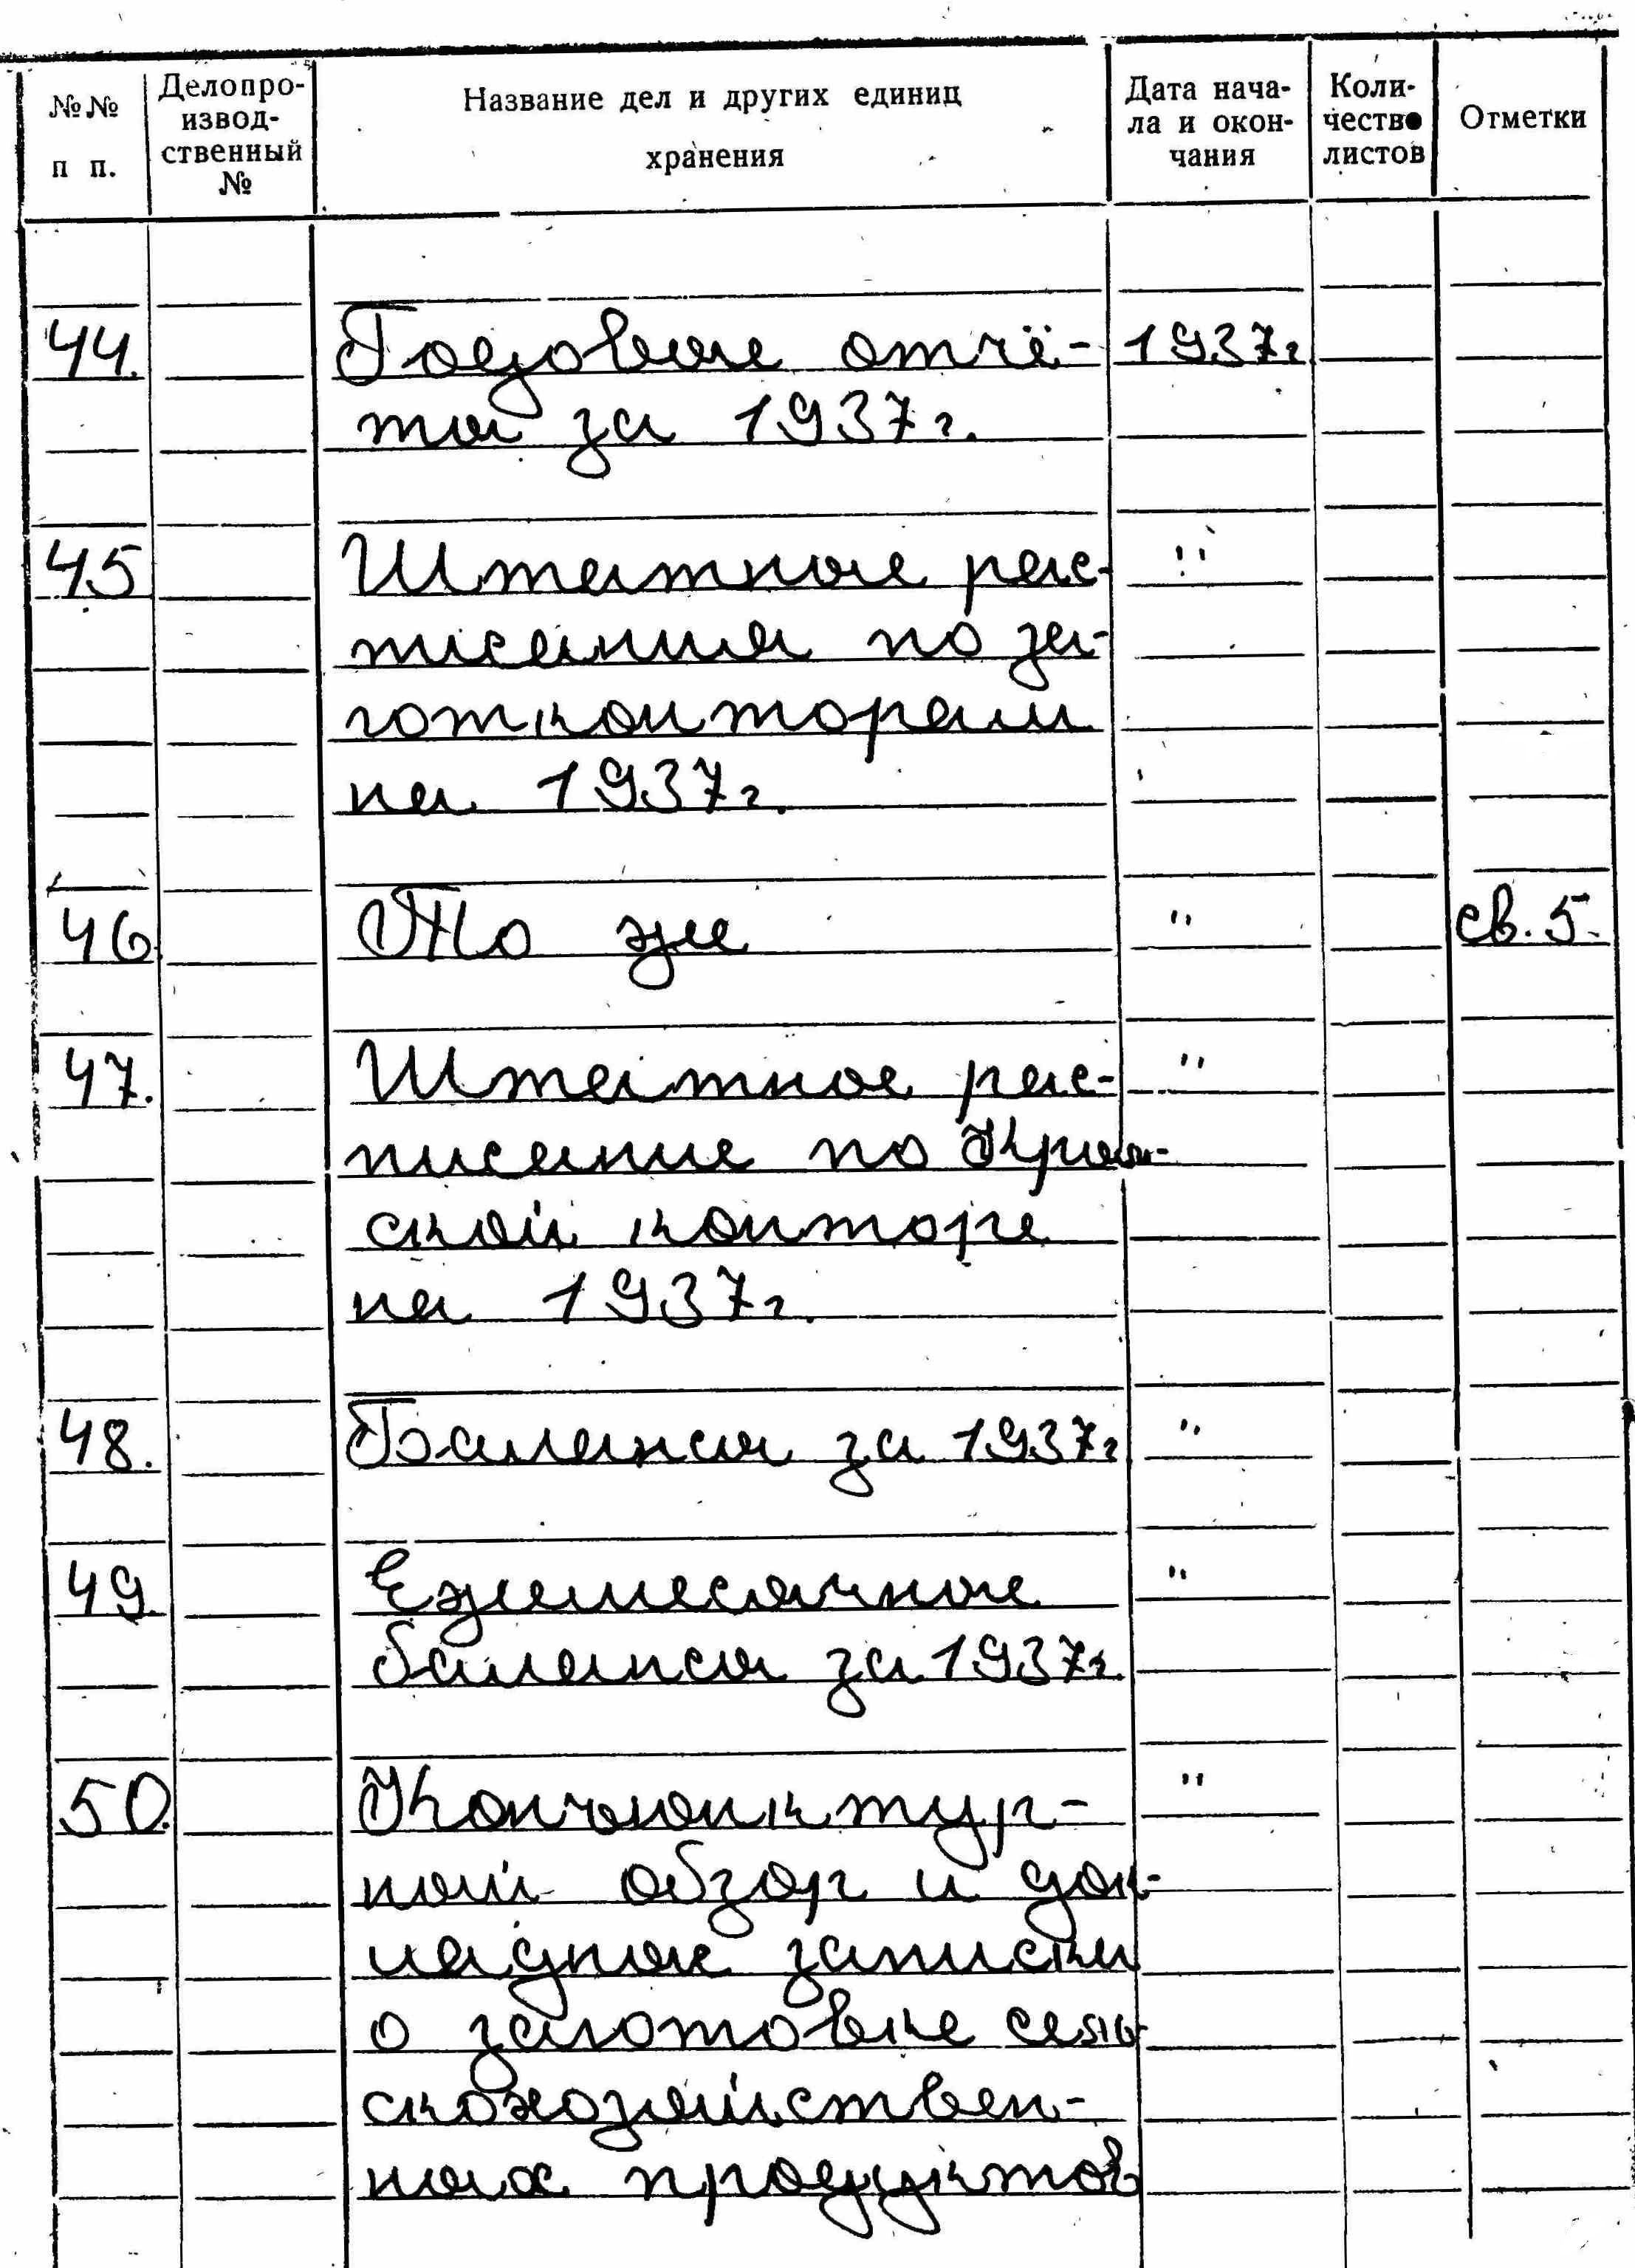 №№ п п.
Делопро-
извод-
ственный
№
Название дел и других единиц
хранения
Дата нача-
ла и окон-
чания
Коли-
чество
листов
Отметки
44. Годовые отчё- 1937г
ты за 1937г.
45 Штатные рас- "
писания по за-
готконторам
на 1937г.
46. То же " св. 5.
47. Штатное рас- "
писание по Крым-
ской конторе
на 1937г.
48. Балансы за 1937г "
49. Ежемесячные "
балансы за 1937г.
50. Конъюнктур- "
ный обзор и док-
ладные записки
о заготовке сель-
скохозяйствен-
ных продуктов